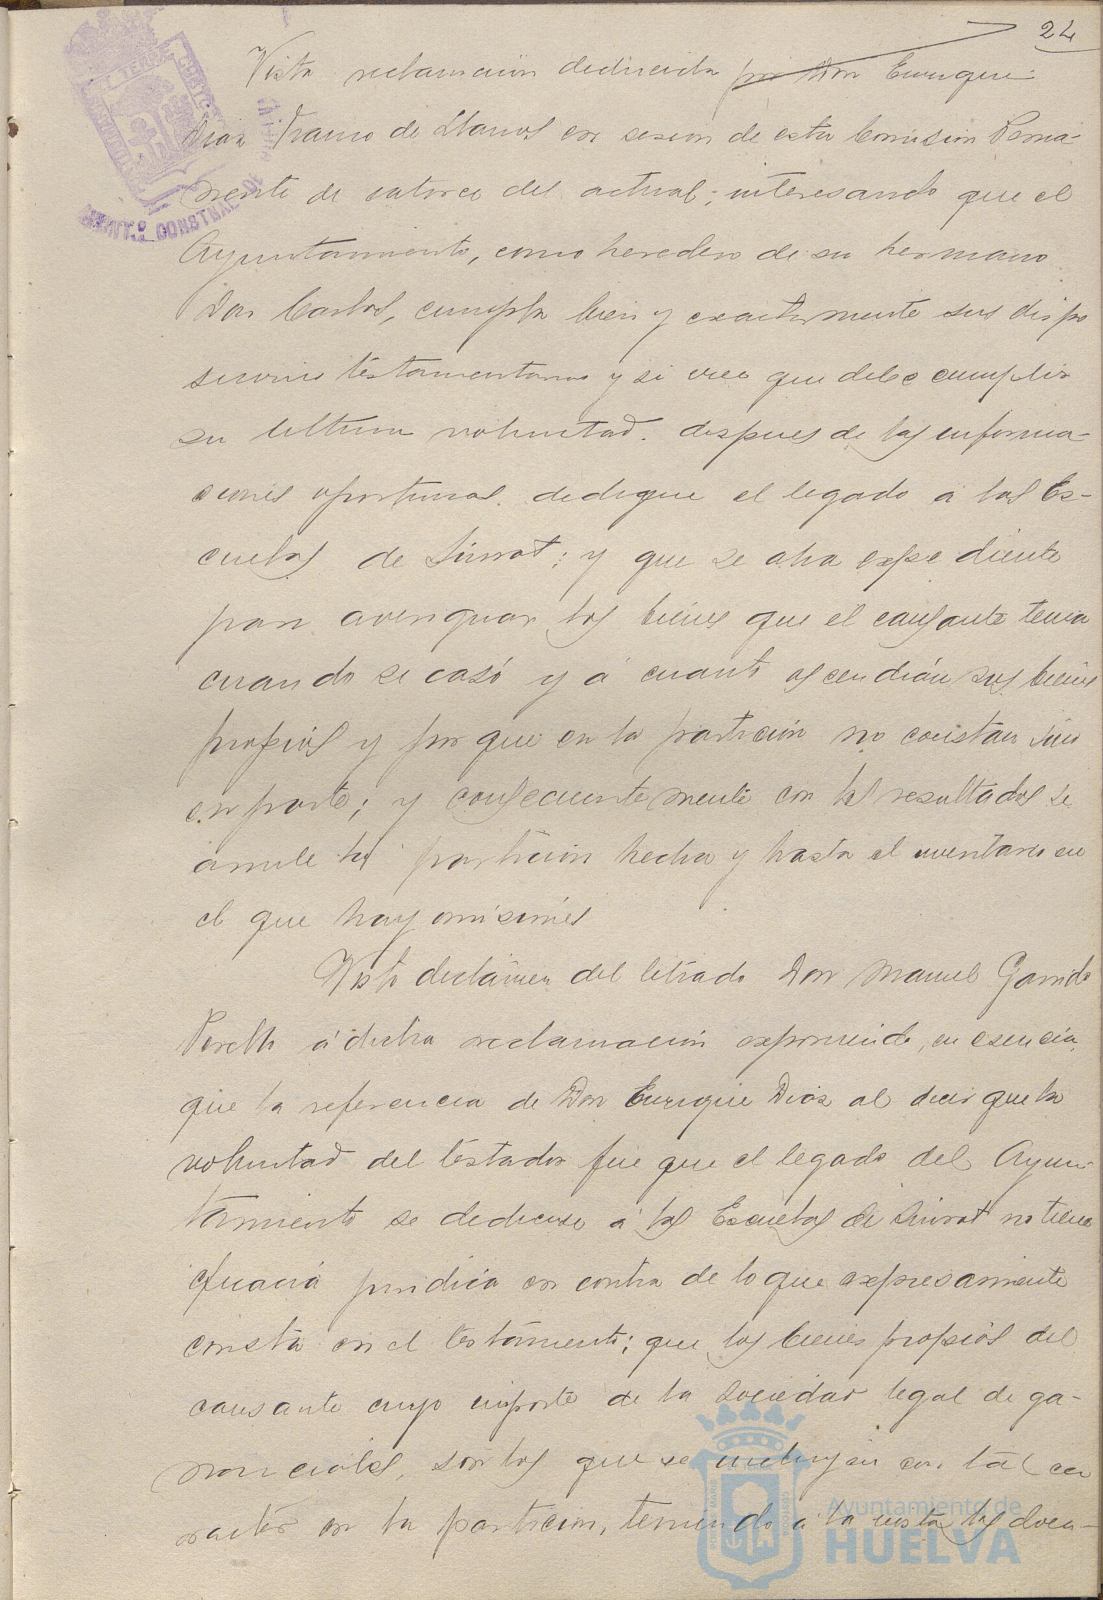 24
Vista reclamación deducida por Don Enrique
Diaz Franco de Llanos en sesion de esta Comision Perma-
nente de catorce del actual, interesando que el
Ayuntamiento, como heredero de su hermano
Don Carlos, cumpla bien y exactamente sus dispo
siciones testamentarias y si cree que debe cumplir
su ultima voluntad. despues de las informa-
ciones oportunas. dedique el legado a las Es-
cuelas de Siurot; y que se abra expediente
para averiguar los bienes que el causante tenia
cuando se casó y á cuanto ascendián sus bienes
propios y por que en la partición no constan sino
en parte; y consecuentemente con los resultados se
anule la partición hecha y hasta el inventario en
el que hay omisiones
Visto dictámen del letrado Don Manuel Garrido
Perelló á dicha reclamación exponiendo, en esencia,
que la referencia de Don Enrique Diaz al decir que la
voluntad del testador fue que el legado del Ayun-
tamiento se dedicase á las Escuelas de Siurot no tiene
eficacia juridica en contra de lo que expresamente
consta en el testamento; que los bienes propios del
causante cuyo importe de la sociedad legal de ga-
nanciales, son los que se incluyen con tal ca
racter en la particion, teniendo á la vista los docu-
Ayuntamiento de
HUELVA